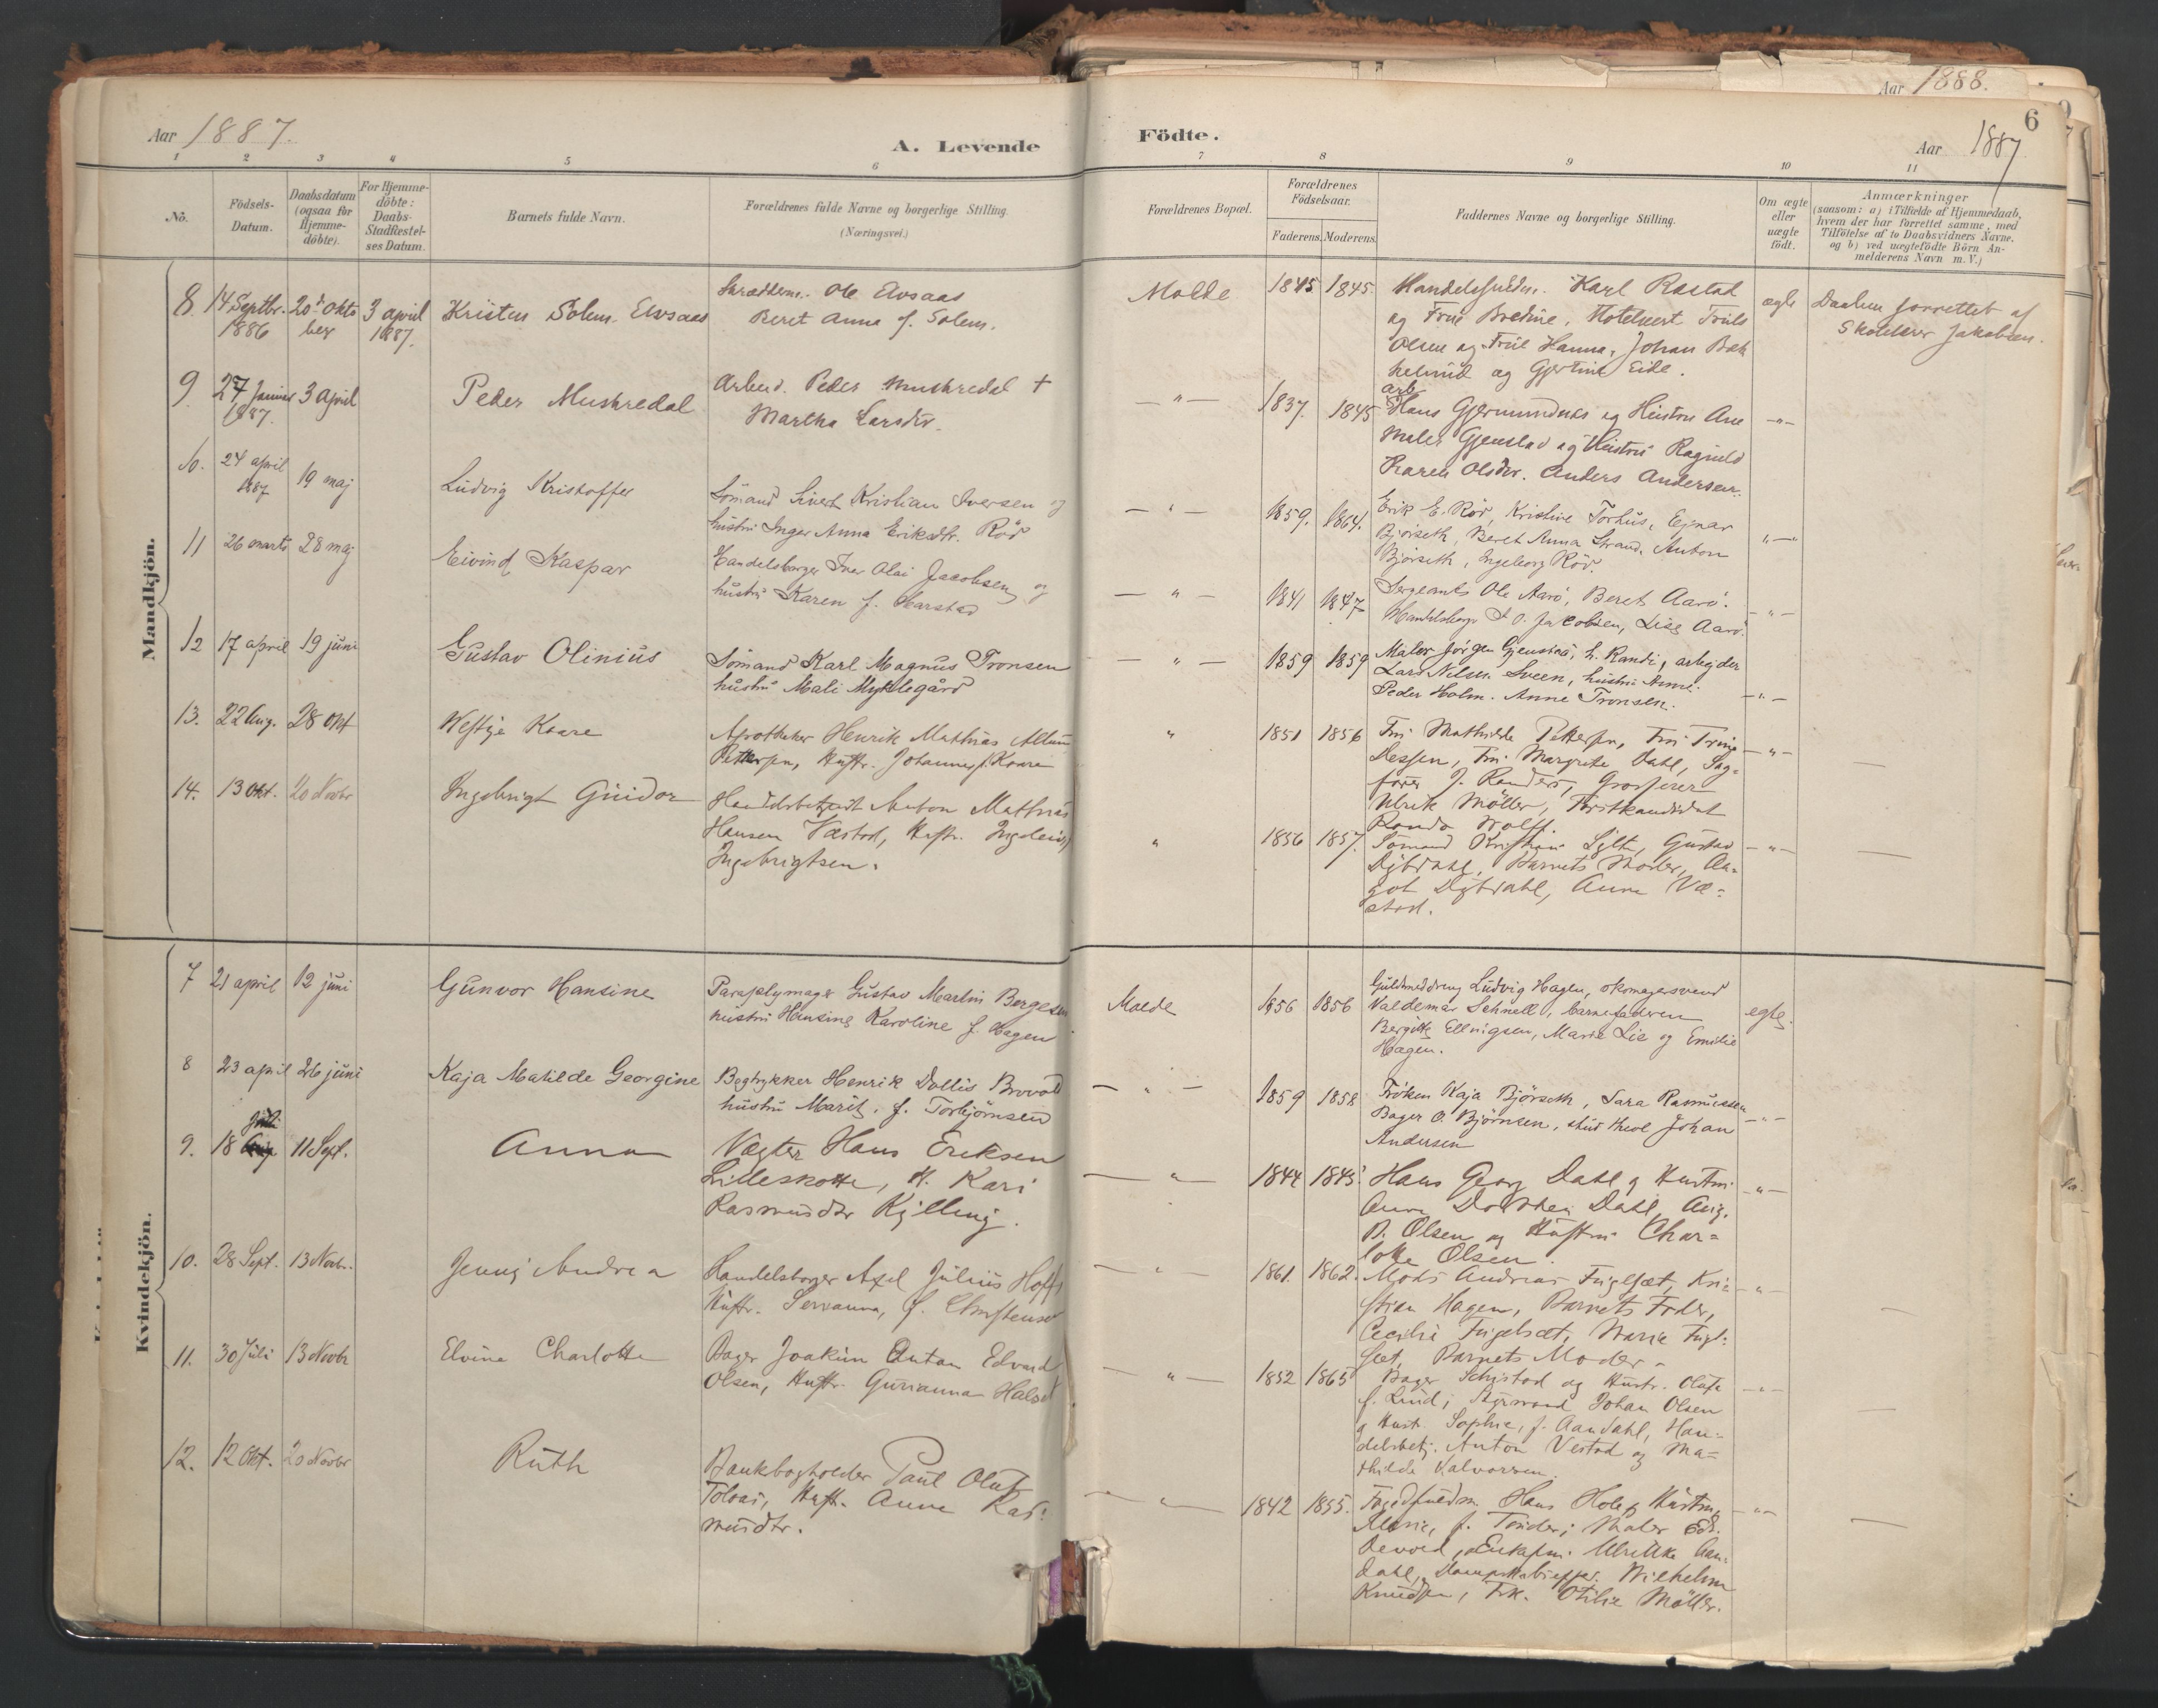 Aar 1888.
6
Aar 1887.
A. Levende
Födte.
Aar 1887
1 2 3 4 5 6 7 8 9 10 11
No.
Födsels-
Datum.
Daabsdatum
(ogsaa for
Hjemme-
döbte).
For Hjemme-
döbte:
Daabs-
Stadfæstel-
ses Datum.
Barnets fulde Navn.
Forældrenes fulde Navne og borgerlige Stilling.
(Næringsvei.)
Forældrenes Bopæl.
Forældrenes
Födselsaar.
Faderens. Moderens.
Faddernes Navne og borgerlige Stilling.
Om ægte
eller
uægte
födt.
Anmærkninger
(saasom: a) i Tilfælde af Hjemmedaab,
hvem der har forrettet samme, med
Tilföielse af to Daabsvidners Navne,
og b) ved uægtefödte Börn An-
melderens Navn m. V.)
Mandkjön.
8 14 Septbr. 1886
20de Okto
ber
3 april
1887.
Kristen Solem Elvsaas
Ole Elvsaas
Beret Anna f. Solem.
Molde
1845 1845.
Karl Rastad
og Frue Bredine, Hotelvert Truls
Olsen og Frue Hanna, Johan
og Gjertine Eide.
ægte
Daaben forrettet af
Jakobsen.
9. 27 Januar 1887. 3 April
Peder Muskredal
Arbeid. Peder Muskredal +
Martha Larsdr.
— " —
1837. 1845
arb.
Hans Gjermundnes og Hustru Ane
Maler Gjenstad og Hustru Ragnild
Karen Olsdr. Anders Andersen.
— " —
10. 24 april 1887 19 maj
Ludvig Kristoffer
Sömand Sivert Kristian Iversen og
hustru Inger Anna Eriksdtr. Röd
— " —
1859. 1864.
Erik E. Röd, Kristine Torhus, Ejnar
Bjørseth, Beret Anna Strand, Anton
Bjørseth, Ingeborg Röd.
— " —
11 26 marts 28 maj
Eivind Kaspar
Handelsborger Iver Olai Jacobsen og
hustru Karen f. Harstad
— " —
1841 1847
Sergeant Ole Aarö, Beret Aarö.
Handelsborger I. O. Jacobsen, Lise Aarö.
— " —
12 17 april 19 juni
Gustav Olinius
Sömand Karl Magnus Tronsen
hustru Mali Myklegård
— " —
1859 1859
Maler Jörgen Gjenstad, h. Randi, arbejder
Lars Nilsen Sveen, hustru Anne.
Peder Holm. Anne Tronsen.
— " —
13. 22 Aug. 28 Okt
Kaare
Apotheker Henrik Mathias
Pettersen, Hustr. Johanne f. Kaarn
"
1851 1856
Fru Mathilde Pettersen, Fru Trine
Dessen, Fru Margrete Dahl, Sag-
förer J. Randers, Grosserer
Ulrik Möller, Forstkandidat
Wolff.
— " —
14. 13 Okt. 20 Novbr
Ingebrigt Guidor
Handelsbetjent Anton Mathias
Hansen Vestad, Hustr. Ingeleiv
Ingebrigtsen.
"
1856 1857.
Sömand Kristian Sylte, Gustav
Dybdahl, Barnets Moder, Aa-
got Dybdahl, Anna Ve-
stad.
— " —
Kvindekjön.
7 21 april 12 juni
Gunvor Hansine
Paraplymager Gustav Martin Borgesen
hustru Hansine Karoline f. Hagen
Molde
1856 1856
Ludvig Hagen, skomagersvend
Valdemar Schnell, barnefaderen
Bergitte Ellingsen, Marie Lie og Emilie
Hagen.
egte.
8 23 april 26 juni
Kaja Matilde Georgine
Bogtrykker Henrik Dollis Brovold
hustru Marit. f. Torbjörnsen
— " —
1859 1858
Fröken Kaja Bjørseth, Sara Rasmussen
Bager O. Björnsen, stud theol Johan
Andersen
— " —
9. 18 Juli 11 Sept.
Anna
Vegter Hans Eriksen
Lilleskotte, H. Kari
Rasmusdtr Kylling.
— " —
1844 1845.
Hans Georg Dahl og Hustru
Anna Dorthea Dahl, Aug.
B. Olsen og Hustru Char-
lotte Olsen.
— " —
10. 28 Sept. 13 Novbr.
Jenny Andrea
Handelsborger Axel Julius Hoff
Hustr. Servanna, f. Christensen
— " —
1861. 1862.
Mads Andreas Fugelsæt, Kri-
stian Hagen, Barnets Fader,
Cecilie Fugelsæt, Marie Fugl-
sæt, Barnets Moder.
— " —
11. 30 Juli 13 Novbr
Elvine Charlotte
Bager Joakim Anton Edvard
Olsen, Hustr. Gurianna Halset
— " —
1852 1865
Bager Schistad og Hustr. Olufa
f. Lund; Styrmand Johan Olsen
og Hustr. Sophie, f. Aandahl, Han-
delsbetj. Anton Vestad og Ma-
thilde Halvorsen.
— " —
12. 12 Okt. 20 Novbr
Ruth
Bankbogholder Paul Oluf
Tolaas, Hustr. Anna Ras-
musdtr.
— " —
1842 1855.
Hans Hole og Hustru
Marie, f. Tønder; Maler Edv.
Devold, Ulrikke Aan-
dahl, Wilhelm
Knudsen, Frk. Otilie Möller.
— " —